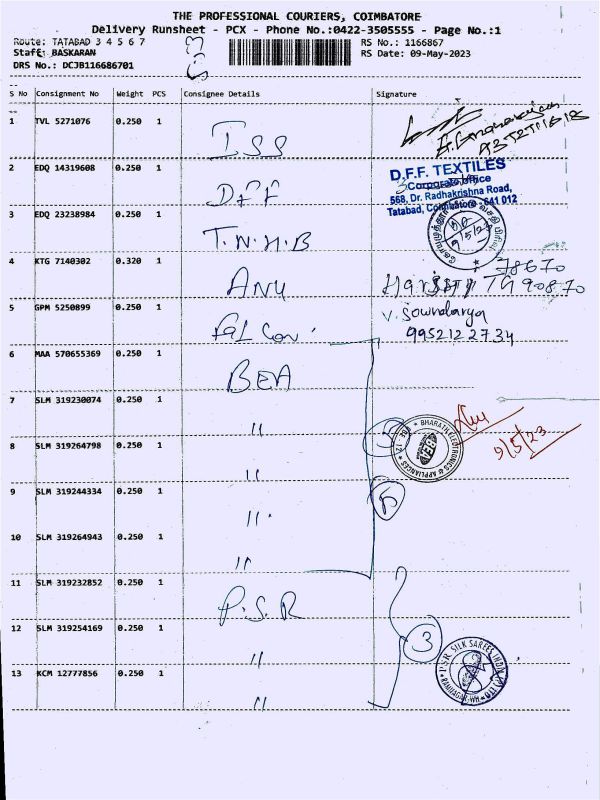 THE PROFESSIONAL COURIERS, COIMBATORE
Delivery Runsheet - PCX - Phone No.:0422-3505555 - Page No.:1
Route: TATABAD 3 4 5 6 7
RS No.: 1166867
Staff: BASKARAN
RS Date: 09-May-2023
DRS No.: DCJB116686701
S No Consignment No Weight PCS Consignee Details Signature
1 TVL 5271076 0.250 1 ISS
2 EDQ 14319608 0.250 1 DFF
D.F.F. TEXTILES
Corporate office
568, Dr. Radhakrishna Road,
Tatabad, Coimbatore - 641 012
3 EDQ 23238984 0.250 1 T.N.H.B
9/5/23
4 KTG 7140302 0.320 1 ANU
78670
90870
5 GPM 5250899 0.250 1 Falcon
V. Soundarya
9952122734
6 MAA 570655369 0.250 1 BEA
7 SLM 319230074 0.250 1 "
BHARATH ELECTRONICS & APPLIANCES
9/5/23
8 SLM 319264798 0.250 1 "
9 SLM 319244334 0.250 1 "
10 SLM 319264943 0.250 1 "
11 SLM 319232852 0.250 1 P.S.R
12 SLM 319254169 0.250 1 "
3
PSR SILK SAREES INDIA
13 KCM 12777856 0.250 1 "